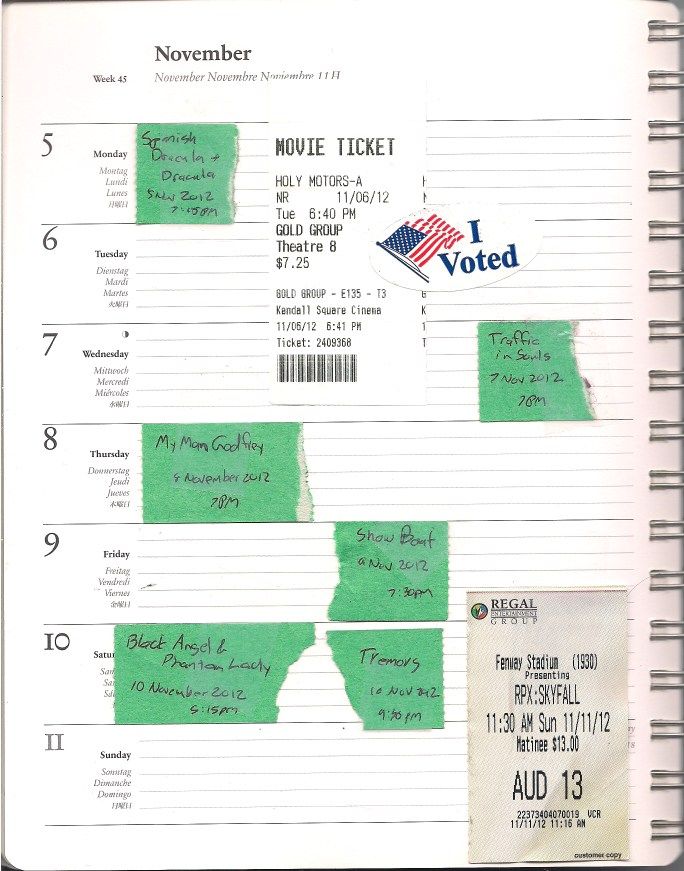 November
Week 45
November Novembre Noviembre 11月
5
Monday
Montag
Lundi
Lunes
月曜日
Spanish
Dracula +
Dracula
5 Nov 2012
7:45PM
MOVIE TICKET
HOLY MOTORS-A
NR 11/06/12
Tue 6:40 PM
GOLD GROUP
Theatre 8
$7.25
GOLD GROUP - E135 - T3
Kendall Square Cinema
11/06/12 6:41 PM
Ticket: 2409368
I
Voted
6
Tuesday
Dienstag
Mardi
Martes
火曜日
7
Wednesday
Mittwoch
Mercredi
Miércoles
水曜日
Traffic
in Souls
7 Nov 2012
7PM
8
Thursday
Donnerstag
Jeudi
Jueves
木曜日
My Man Godfrey
8 November 2012
7PM
9
Friday
Freitag
Vendredi
Viernes
金曜日
Show Boat
9 Nov 2012
7:30PM
10
Satur
Sam
Sa
Sá
Black Angel &
Phantom Lady
10 November 2012
5:15PM
Tremors
10 Nov 2012
9:30 PM
11
Sunday
Sonntag
Dimanche
Domingo
日曜日
REGAL
ENTERTAINMENT
GROUP
Fenway Stadium (1930)
Presenting
RPX:SKYFALL
11:30 AM Sun 11/11/12
Matinee $13.00
AUD 13
22373404070019 VCR
11/11/12 11:16 AM
customer copy